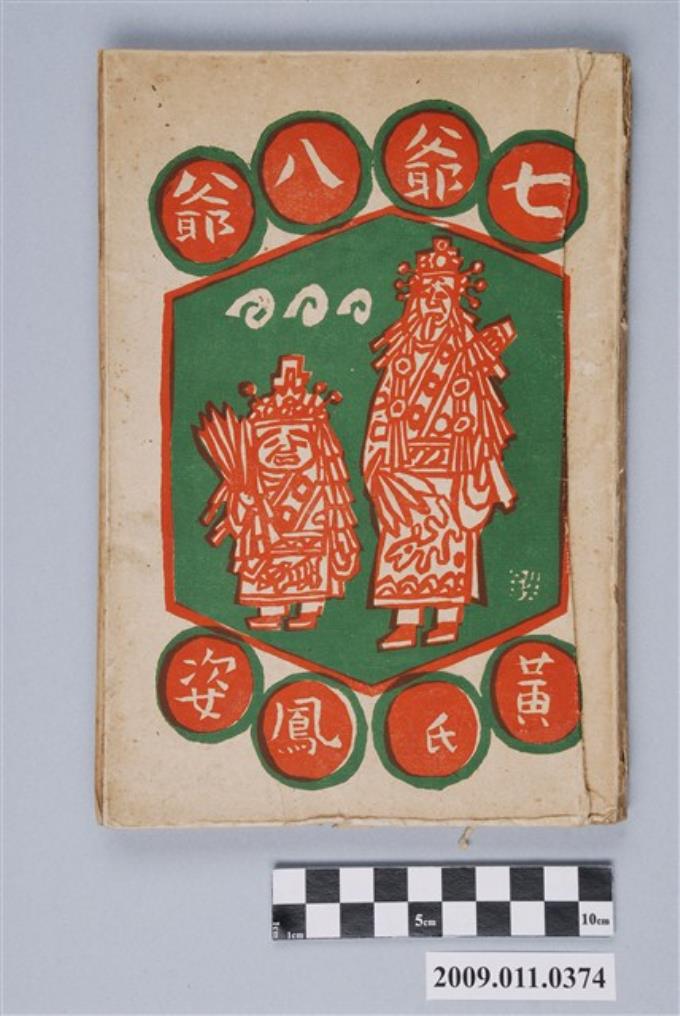 七爺八爺
黃氏鳳姿
1cm
5cm
10cm
2009.011.0374